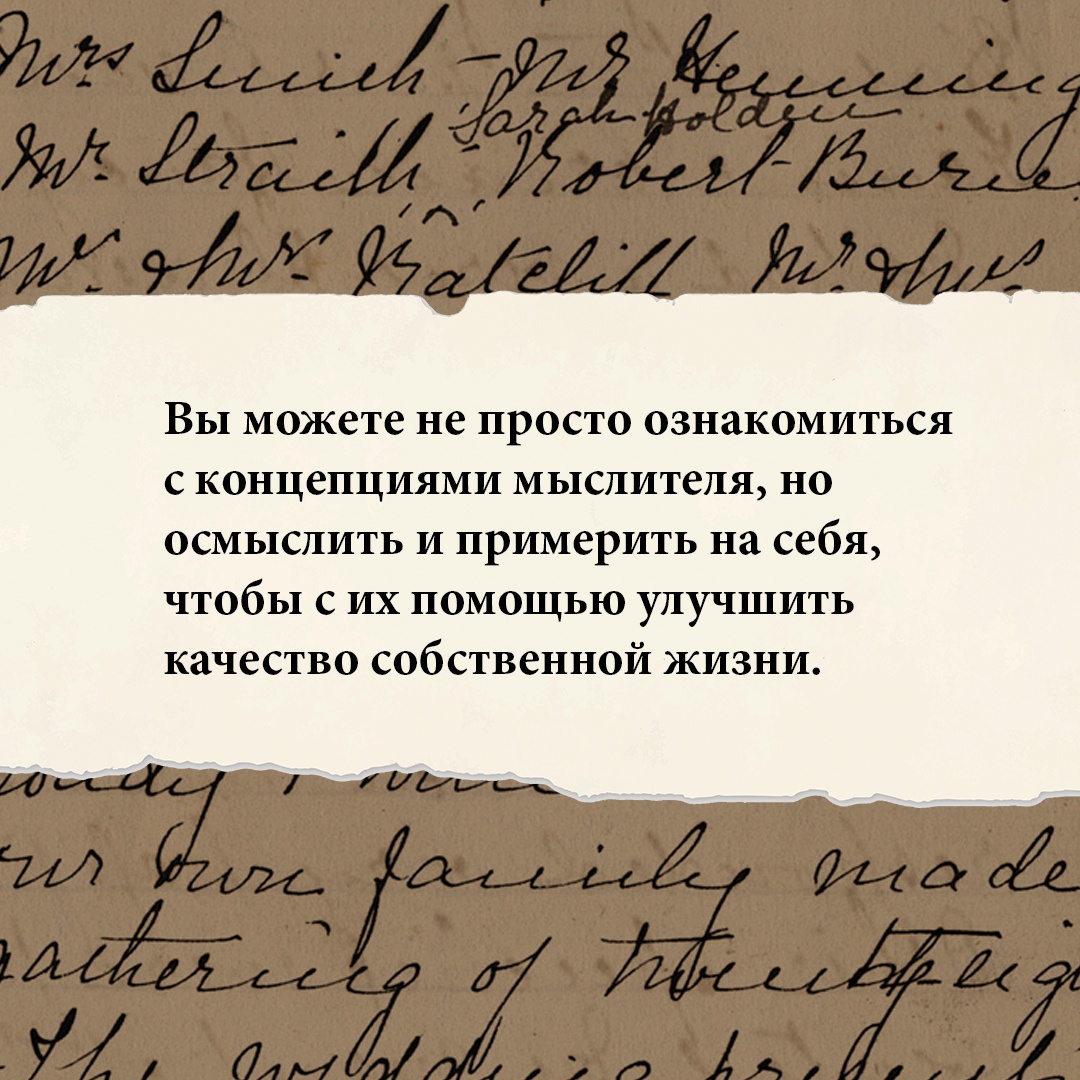 Mrs Smith - Mr Hemming
Sarah Holden
Mr. Straith - Robert Burie
Mr. & Mrs. Ratcliff Mr & Mrs
Вы можете не просто ознакомиться
с концепциями мыслителя, но
осмыслить и примерить на себя,
чтобы с их помощью улучшить
качество собственной жизни.
own family made
gathering of
The wedding present